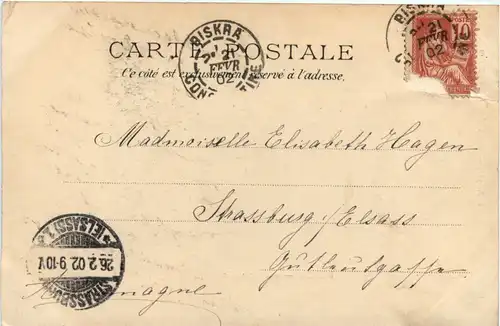 CARTE POSTALE
Ce côté est exclusivement réservé à l'adresse.
BISKRA
21
FEVR
02
CONSTANTINE
BISKRA
21
FEVR
02
POSTE
10
Mademoiselle Elisabeth Hagen
Strassburg/Elsass
Gutleutgasse
Allemagne
STRASSBURG
26.2.02.9-10V
(ELSASS) 1